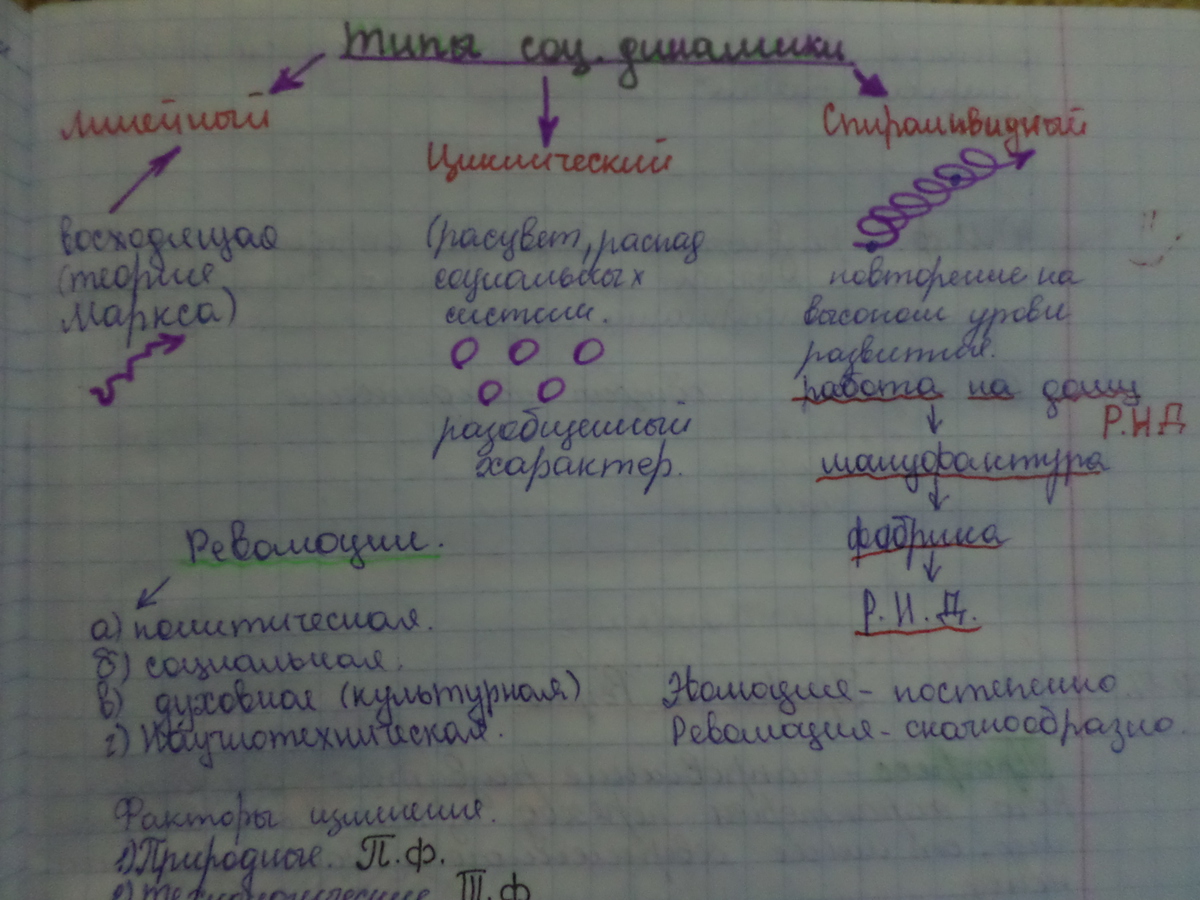 Типы соц. динамики
Линейный
восходящая
(теория
Маркса)
Циклический
(расцвет, распад
социальных
систем.
разобщенный
характер.
Спираливидный
повторение на
высоком уровн
развития.
работа на дому
Р.Н.Д
мануфактура
фабрика
Р.Н.Д.
Революции.
а) политическая.
б) социальная.
в) духовная (культурная)
г) Научнотехническая.
Эволюция - постепенно
Революция - скачкообразно.
Факторы изменения.
1) Природные. П.ф.
2) технологические Т.ф